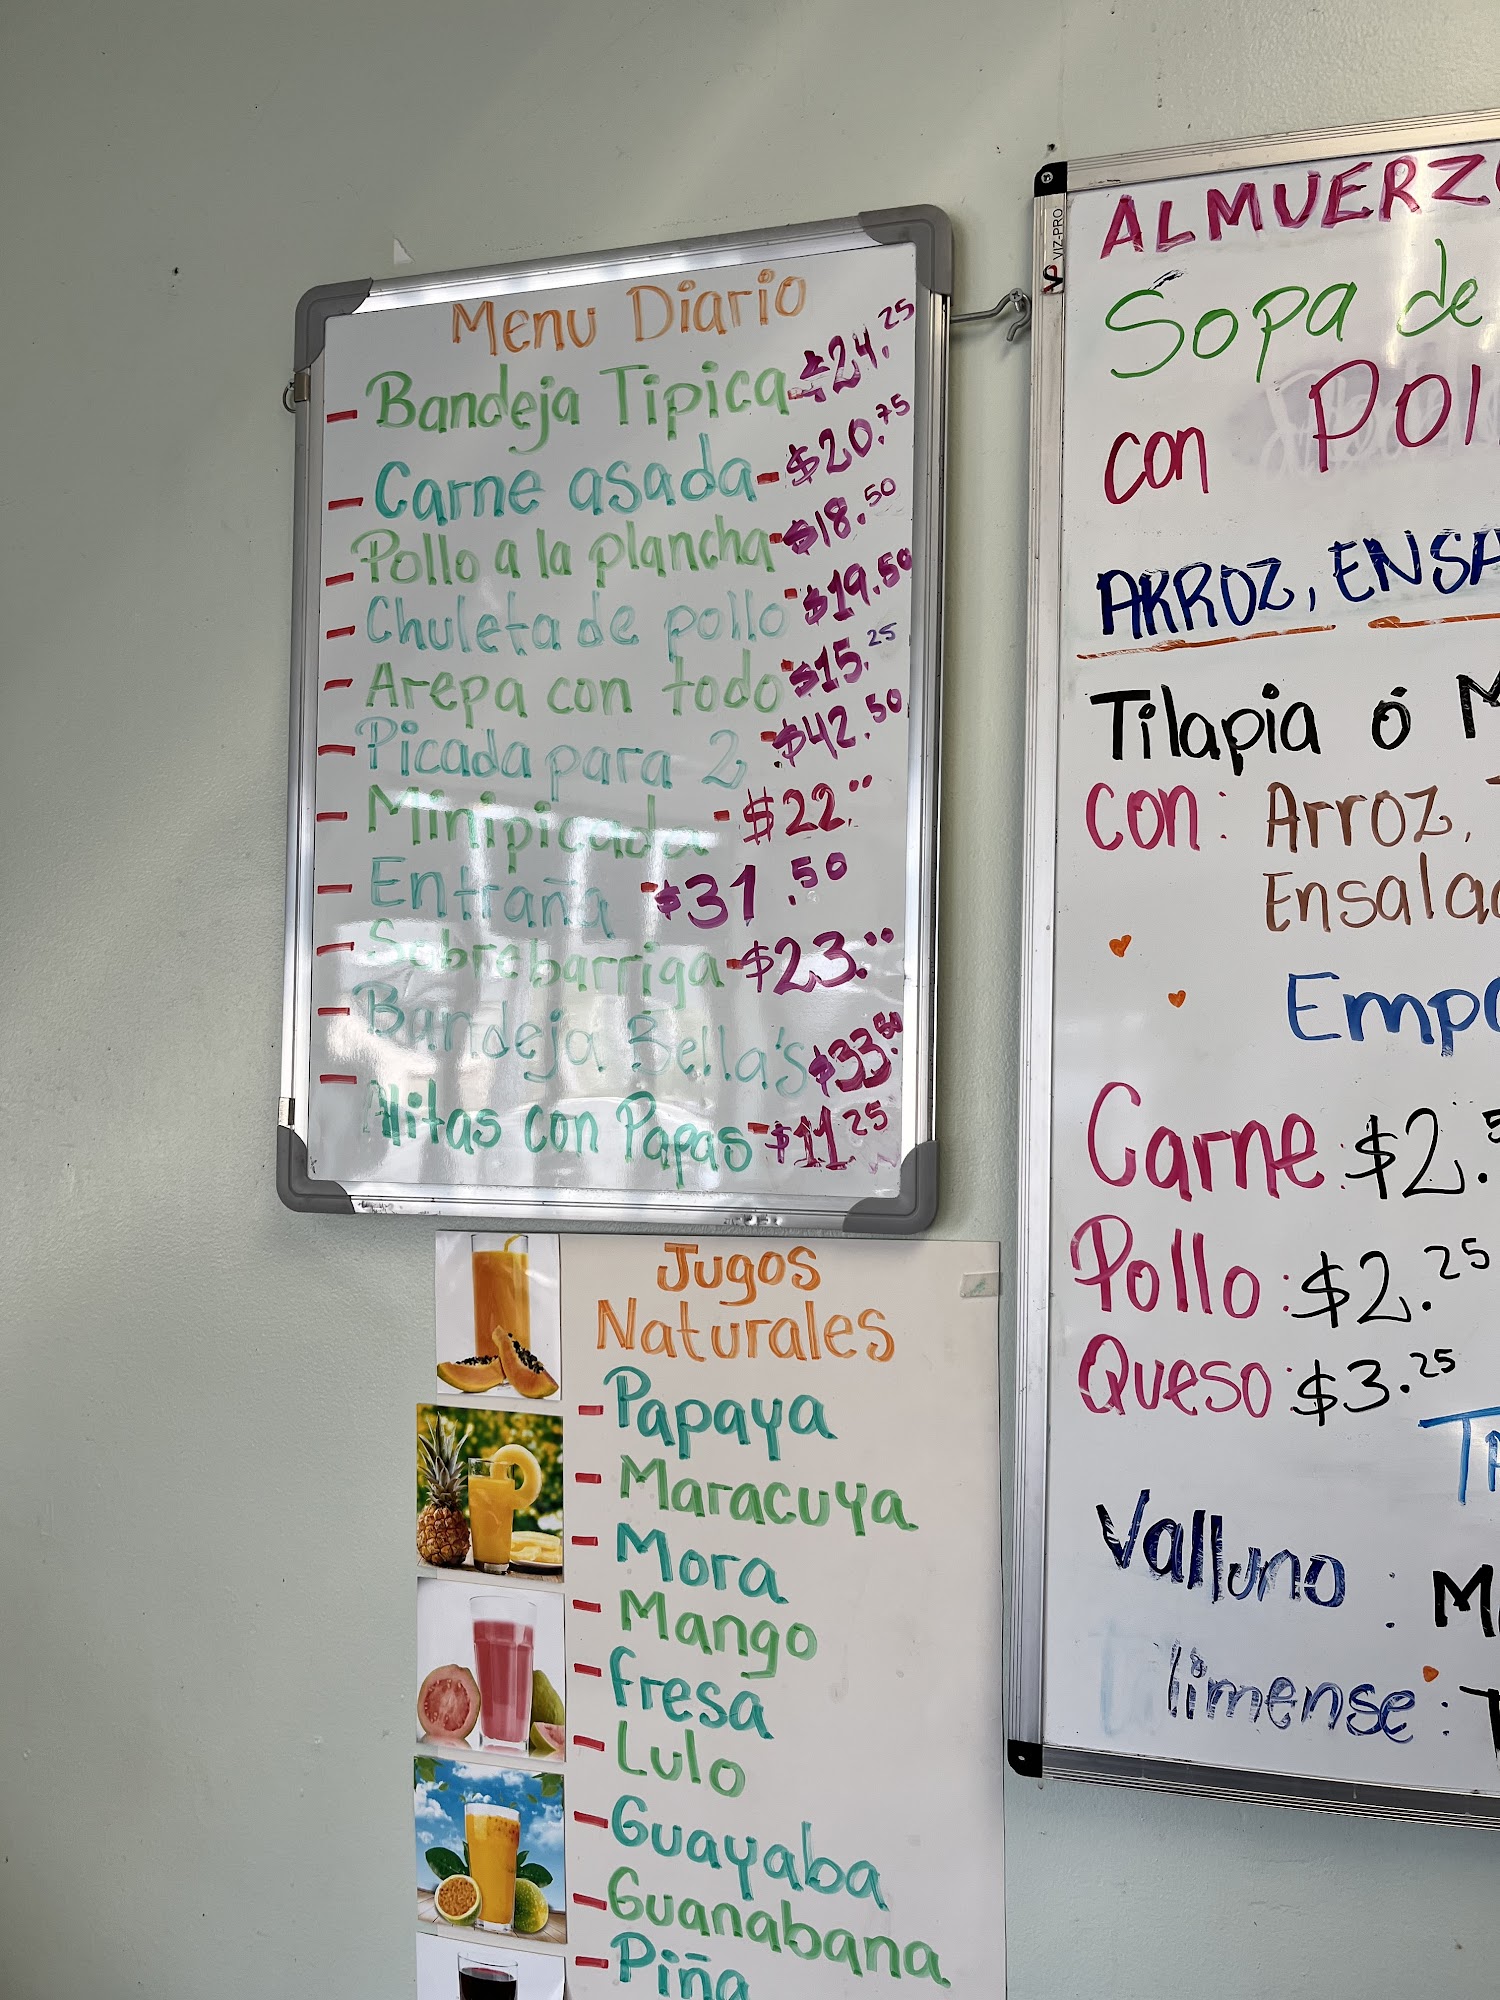 Menu Diario
- Bandeja Tipica - $24.25
- Carne asada - $20.75
- Pollo a la plancha - $18.50
- Chuleta de pollo - $19.50
- Arepa con todo - $15.25
- Picada para 2 - $42.50
- Minipicada - $22.00
- Entraña - $31.50
- Sobrebarriga - $23.00
- Bandeja Bella's $33.50
- Alitas con Papas - $11.25
Jugos
Naturales
- Papaya
- Maracuya
- Mora
- Mango
- fresa
- Lulo
- Guayaba
- Guanabana
- Piña
VIZ-PRO
ALMUERZO
Sopa de
con
ARROZ, ENSA
Tilapia ó
con: Arroz,
Ensalad
Empa
Carne: $2.5
Pollo: $2.25
Queso: $3.25
Valluno :
limense :